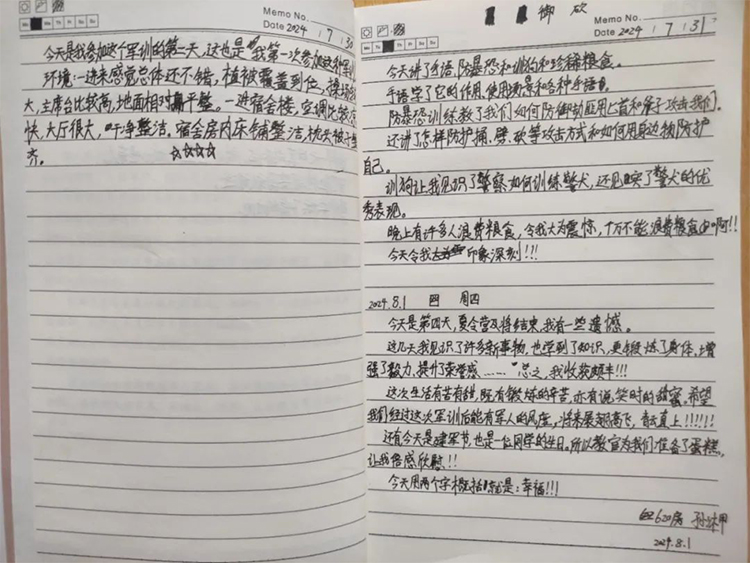 Memo No.
Mo Tu We Th Fr Sa Su
Date 2024 / 7 / 30
今天是我参加这个军训的第二天,这也是我第一次参加这种军
环境:一进来感觉总体还不错,植被覆盖到位,操场
大,主席台比较高,地面相对平整。一进宿舍楼,空调比较
快,大厅很大,干净整洁,宿舍房内床铺整洁,枕头被子整
齐。 ☆☆☆☆
御 砍
Memo No.
Mo Tu We Th Fr Sa Su
Date 2024 / 7 / 31
今天讲了手语,防暴恐和训狗和珍稀粮食。
手语学了它的作用,使用场景和各种手语。
防暴恐训练教了我们,如何防御敌用匕首和棍子攻击我们。
还讲了怎样防护捅、劈、砍等攻击方式和如何用身边物防护
自己。
训狗让我见识了警察如何训练警犬,还见了警犬的优
秀表现。
晚上有许多人浪费粮食,令我大为震惊,千万不能浪费粮食啊!!
今天令我印象深刻!!!
2024.8.1 四 周四
今天是第四天,夏令营及将结束,我有一些遗憾。
这几天我见识了许多新事物,也学到了知识,更锻炼了身体,增
强了毅力,提升了荣誉感……总之,我收获颇丰!!!
这次生活有苦有甜,既有锻炼的辛苦,亦有说笑时的甜蜜,希望
我们经过这次军训后能有军人的风度,将来展翅高飞,青云直上!!!!!!
还有今天是建军节,也是一位同学的生日。所以教官为我们准备了蛋糕,
让我倍感欣慰!!
今天用两个字概括就是:幸福!!!
620房 孙沐甲
2024.8.1